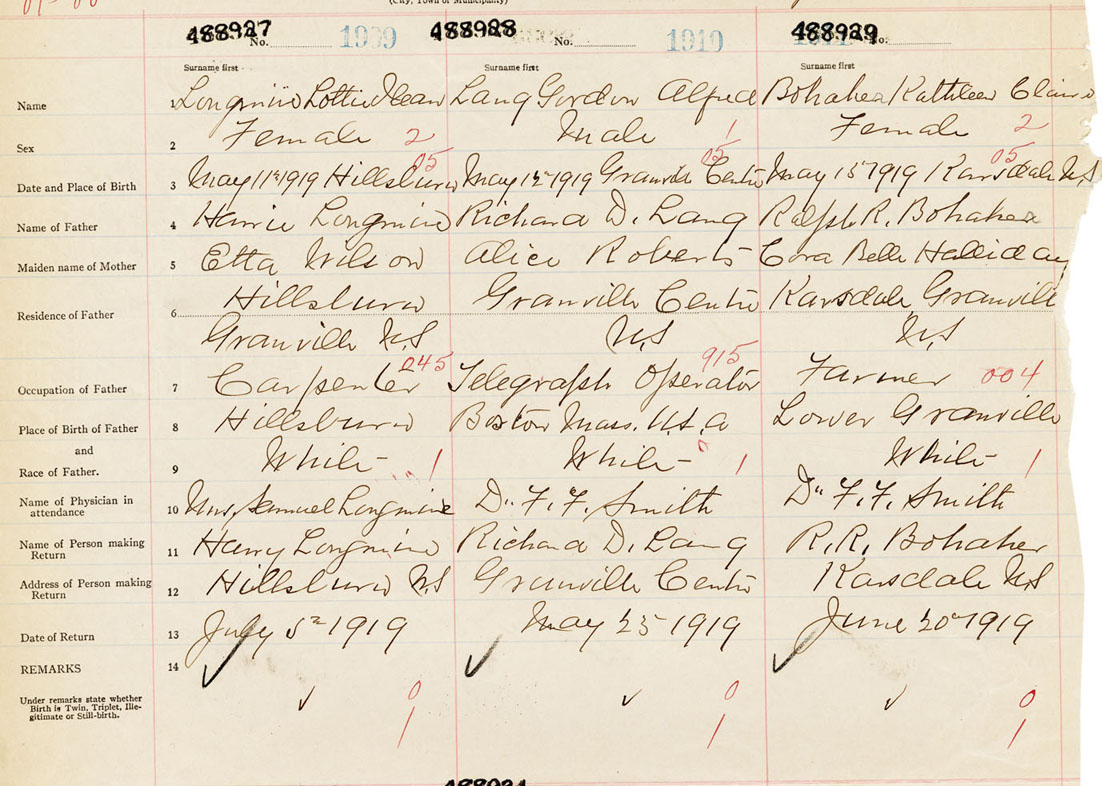 (City, Town or Municipality)
488927 No. 1909 488928 No. 1910 488929 No.
Surname first Surname first Surname first
Name 1 Longmire Lottie Jean Lang Gordon Alfred Bohaker Kathleen Claire
Sex 2 Female 2 Male 1 Female 2
05 05 05
Date and Place of Birth 3 May 11th 1919 Hillsburn May 12 1919 Granville Centre May 15 1919 Karsdale N.S
Name of Father 4 Harrie Longmire Richard D. Lang Ralph R. Bohaker
Maiden name of Mother 5 Etta Wilson Alice Roberts Cora Belle Halliday
Residence of Father 6 Hillsburn Granville Centre Karsdale Granville
Granville N.S N.S N.S
245 915
Occupation of Father 7 Carpenter Telegraph Operator Farmer 004
Place of Birth of Father 8 Hillsburn Boston Mass. U.S.A Lower Granville
and
Race of Father. 9 White 1 White 1 White 1
Name of Physician in
attendance 10 Mrs, Samuel Longmire Dr. F. F. Smith Dr F. F. Smith
Name of Person making
Return 11 Harry Longmire Richard D. Lang R. R. Bohaker
Address of Person making
Return 12 Hillsburn N.S Granville Centre Karsdale N.S
Date of Return 13 July 5 1919 May 25 1919 June 20 1919
REMARKS 14
Under remarks state whether
Birth is Twin, Triplet, Ille-
gitimate or Still-birth.
0 0 0
1 1 1